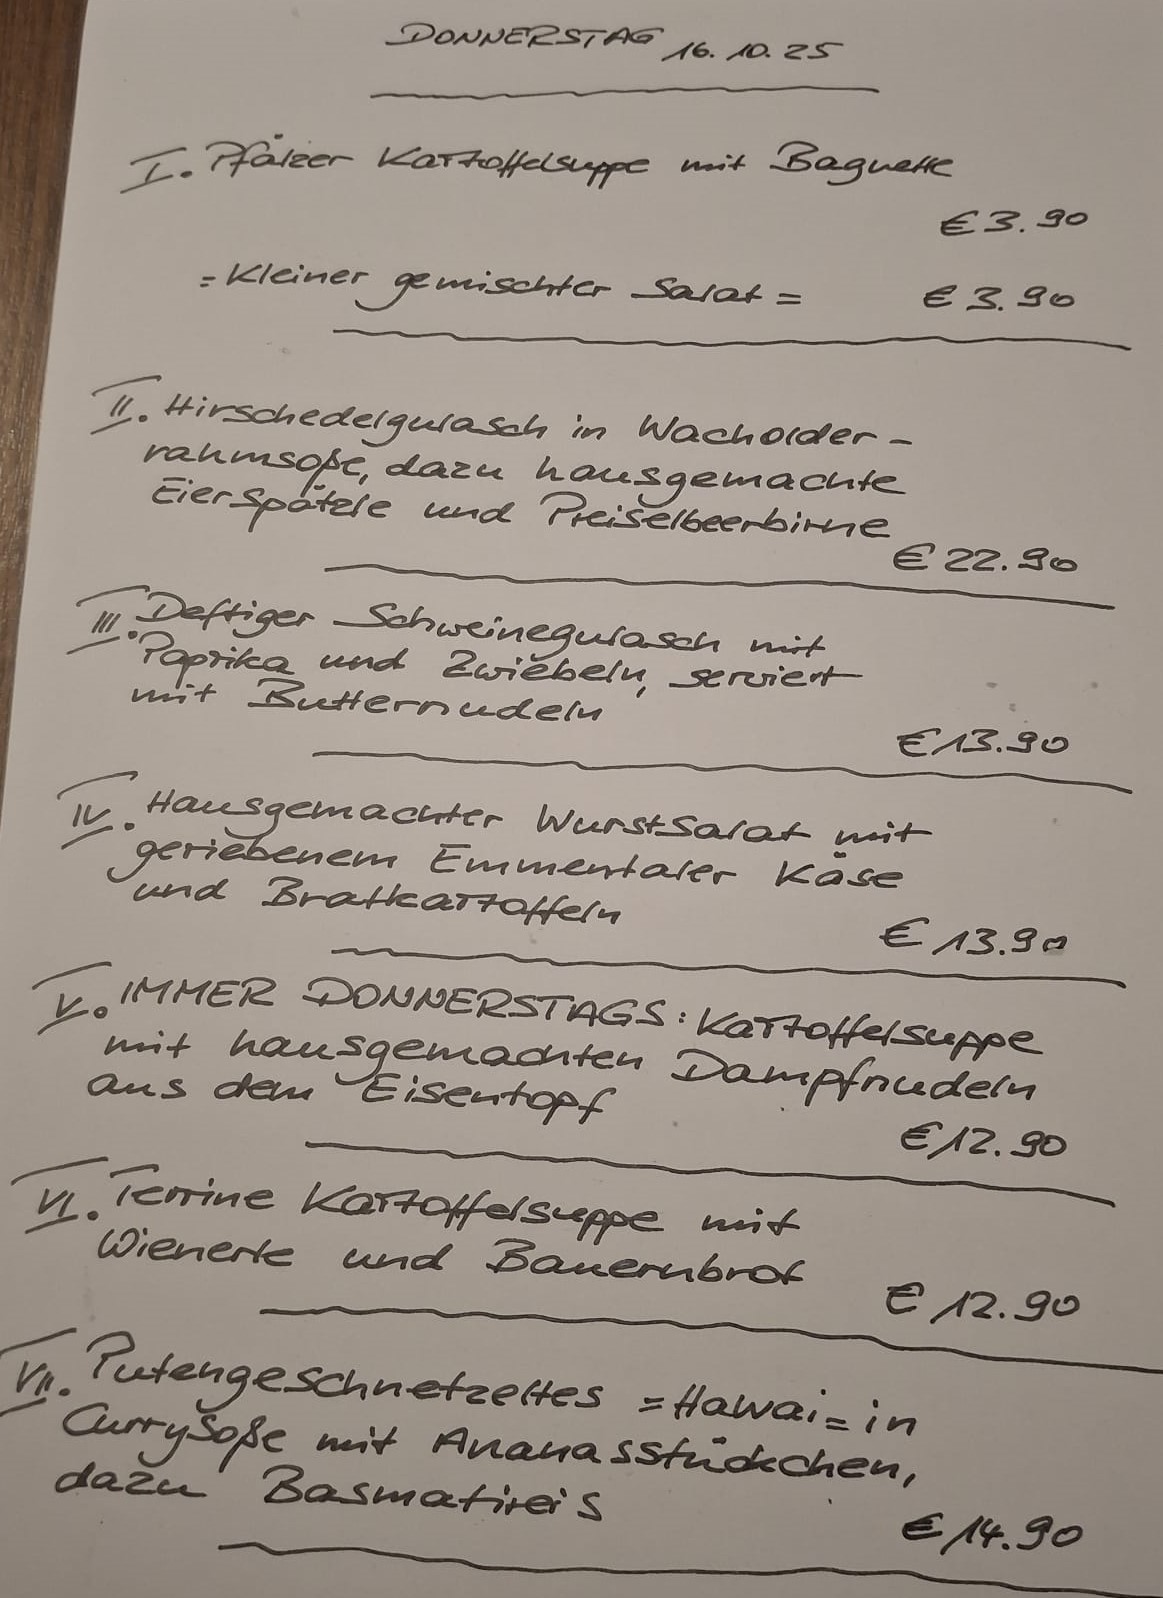 DONNERSTAG 16.10.25
I. Pfälzer Kartoffelsuppe mit Baguette
€ 3.90
= Kleiner gemischter Salat = € 3.90
II. Hirschedelgulasch in Wacholder-
rahmsoße, dazu hausgemachte
Eierspätzle und Preiselbeerbirne
€ 22.90
III. Deftiger Schweinegulasch mit
Paprika und Zwiebeln, serviert
mit Butternudeln
€ 13.90
IV. Hausgemachter Wurstsalat mit
geriebenem Emmentaler Käse
und Bratkartoffeln
€ 13.90
V. IMMER DONNERSTAGS: Kartoffelsuppe
mit hausgemachten Dampfnudeln
aus dem Eisentopf
€ 12.90
VI. Terrine Kartoffelsuppe mit
Wienerle und Bauernbrot
€ 12.90
VII. Putengeschnetzeltes =Hawai= in
Currysoße mit Ananasstückchen,
dazu Basmatireis
€ 14.90